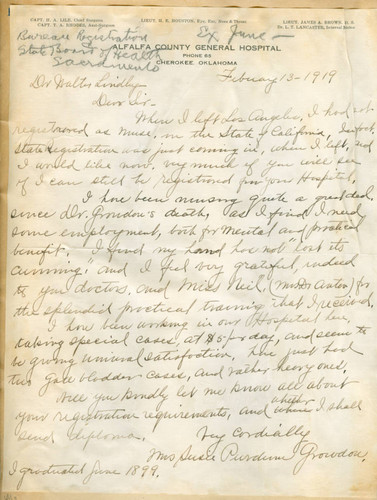 CAPT. H. A. LILE, Chief Surgeon
CAPT. T. A. RHODES, Asst Surgeon
LIEUT. H. E. HUSTON, Eye, Ear, Nose & Throat
LIEUT. JAMES A. BROWN, D. S.
Dr. L. T. LANCASTER, Internal Medicine
Bureau Registration
State Board of Health
Sacramento
Ex June—
ALFALFA COUNTY GENERAL HOSPITAL
PHONE 65
CHEROKEE, OKLAHOMA
February 13-1919
Dr Walter Lindley—
Dear Sir—
When I left Los Angeles, I had not
registered as nurse, in the State of California, in fact,
state registration was just coming in, when I left, and
I would like now, very much if you will see
if I can still be registered from your Hospital.
I have been nursing quite a great deal
since Dr. Growdon's death, as I find I need
some employment, both for mental and practical
benefit. I find my hand has "not" lost its
cunning, and I feel very grateful, indeed
to you doctors, and Miss Neil, (Mrs Anton) for
the splendid practical training that I received.
I have been working in our Hospital here,
taking special cases, at $5 per day, and seem to
be giving unusual satisfaction, have just had
two gall bladder cases, and rather heavy ones.
Will you kindly let me know all about
your registration requirements, and where I shall
send diploma.
Very Cordially
Mrs Susie Purdum Growdon.
I graduated June 1899.